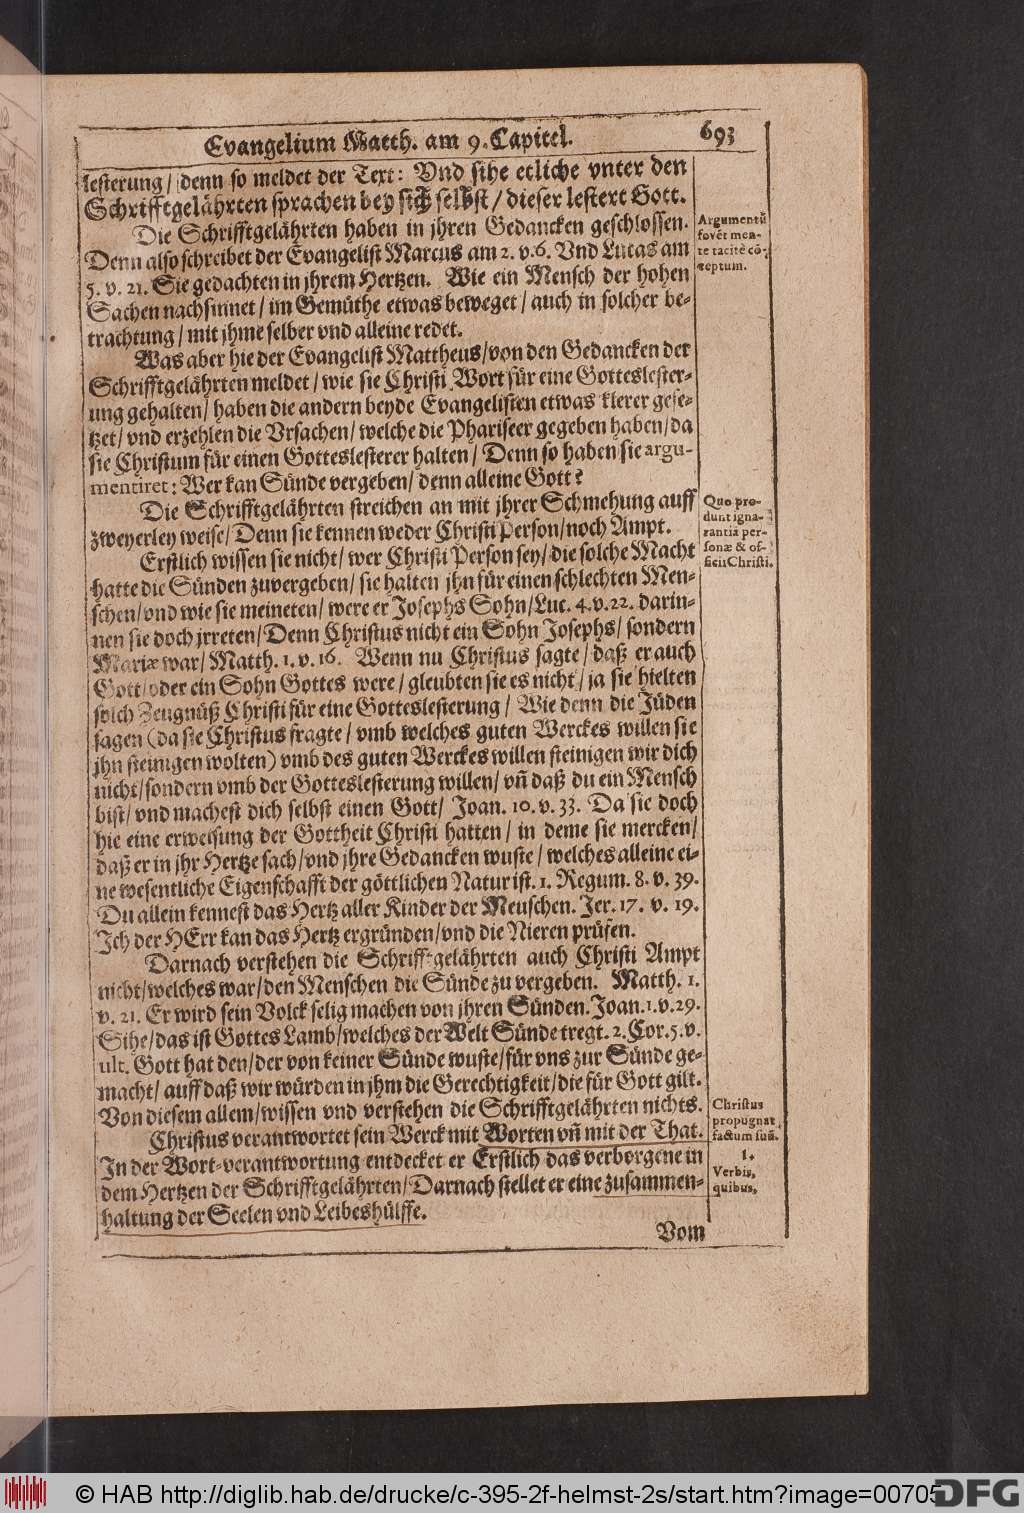 Evangelium Matth. am 9. Capitel. 693
lesterung/ denn so meldet der Text: Vnd sihe etliche vnter den
Schrifftgelährten sprachen bey sich selbst/ dieser lestert Gott.
Die Schrifftgelährten haben in jhren Gedancken geschlossen.
Denn also schreibet der Evangelist Marcus am 2. v. 6. Vnd Lucas am
5. v. 21. Sie gedachten in jhrem Hertzen. Wie ein Mensch der hohen
Sachen nachsinnet/ im Gemüthe etwas beweget/ auch in solcher be-
trachtung/ mit jhme selber vnd alleine redet.
Argumentū
fovēt men-
te tacitè cō-
ceptum.
Was aber hie der Evangelist Mattheus/ von den Gedancken der
Schrifftgelährten meldet/ wie sie Christi Wort für eine Gotteslester-
ung gehalten/ haben die andern beyde Evangelisten etwas klerer gese-
tzet/ vnd erzehlen die Vrsachen/ welche die Phariseer gegeben haben/ da
sie Christum für einen Gotteslesterer halten/ Denn so haben sie argu-
mentiret: Wer kan Sünde vergeben/ denn alleine Gott?
Die Schrifftgelährten streichen an mit jhrer Schmehung auff
zweyerley weise/ Denn sie kennen weder Christi Person/ noch Ampt.
Quo pro-
dunt igna-
rantia per-
sonæ & of-
ficii Christi.
Erstlich wissen sie nicht/ wer Christi Person sey/ die solche Macht
hatte die Sünden zuvergeben/ sie halten jhn für einen schlechten Men-
schen/ vnd wie sie meineten/ were er Josephs Sohn/ Luc. 4. v. 22. darin-
nen sie doch jrreten/ Denn Christus nicht ein Sohn Josephs/ sondern
Mariæ war/ Matth. 1. v. 16. Wenn nu Christus sagte/ daß er auch
Gott/ oder ein Sohn Gottes were/ gleubten sie es nicht/ ja sie hielten
solch Zeugnüß Christi für eine Gotteslesterung/ Wie denn die Jüden
sagen (da sie Christus fragte/ vmb welches guten Werckes willen sie
jhn steinigen wolten) vmb des guten Werckes willen steinigen wir dich
nicht/ sondern vmb der Gotteslesterung willen/ vñ daß du ein Mensch
bist/ vnd machest dich selbst einen Gott/ Joan. 10. v. 33. Da sie doch
hie eine erweisung der Gottheit Christi hatten/ in deme sie mercken/
daß er in jhr Hertze sach/ vnd jhre Gedancken wuste/ welches alleine ei-
ne wesentliche Eigenschafft der göttlichen Natur ist. 1. Regum. 8. v. 39.
Du allein kennest das Hertz aller Kinder der Meuschen. Jer. 17. v. 19.
Ich der HErr kan das Hertz ergründen/ vnd die Nieren prüfen.
Darnach verstehen die Schrifftgelährten auch Christi Ampt
nicht/ welches war/ den Menschen die Sünde zu vergeben. Matth. 1.
v. 21. Er wird sein Volck selig machen von jhren Sünden. Joan. 1. v. 29.
Sihe/ das ist Gottes Lamb/ welches der Welt Sünde tregt. 2. Cor. 5. v.
ult. Gott hat den/ der von keiner Sünde wuste/ für vns zur Sünde ge-
macht/ auff daß wir würden in jhm die Gerechtigkeit/ die für Gott gilt.
Von diesem allem/ wissen vnd verstehen die Schrifftgelährten nichts.
Christus verantwortet sein Werck mit Worten vñ mit der That.
In der Wort-verantwortung entdecket er Erstlich das verborgene in
dem Hertzen der Schrifftgelährten/ Darnach stellet er eine zusammen-
haltung der Seelen vnd Leibeshülffe.
Christus
propugnat
factum suū.
1.
Verbis,
quibus,
Vom
© HAB http://diglib.hab.de/drucke/c-395-2f-helmst-2s/start.htm?image=00705
DFG